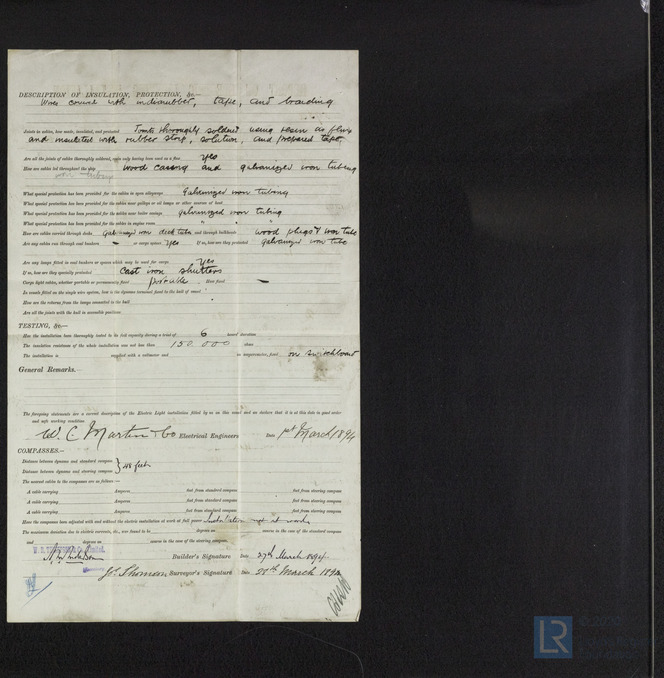 DESCRIPTION OF INSULATION, PROTECTION, &c.—
Wires covered with indiarubber, tape, and braiding
Joints in cables, how made, insulated, and protected Joints thoroughly soldered using resin as flux
and insulated with rubber strip, solution, and prepared tape
Are all the joints of cables thoroughly soldered, resin only having been used as a flux yes
How are cables led throughout the ship wood casing and galvanized iron tubing
What special protection has been provided for the cables in open alleyways Galvanized iron tubing
What special protection has been provided for the cables near galleys or oil lamps or other sources of heat
What special protection has been provided for the cables near boiler casings galvanized iron tubing
What special protection has been provided for the cables in engine room " "
How are cables carried through decks Galvanized iron deck tube and through bulkheads wood plugs & iron tube
Are any cables run through coal bunkers — or cargo spaces yes If so, how are they protected galvanized iron tube
Are any lamps fitted in coal bunkers or spaces which may be used for cargo yes
If so, how are they specially protected Cast iron shutters
Cargo light cables, whether portable or permanently fixed Portable How fixed —
In vessels fitted on the single wire system, how is the dynamo terminal fixed to the hull of vessel
How are the returns from the lamps connected to the hull
Are all the joints with the hull in accessible positions
TESTING, &c.—
Has the installation been thoroughly tested to its full capacity during a trial of 6 hours' duration
The insulation resistance of the whole installation was not less than 150,000 ohms
The installation is supplied with a voltmeter and an amperemeter, fixed on switchboard
General Remarks.—
The foregoing statements are a correct description of the Electric Light installation fitted by us on this vessel and we declare that it is at this date in good order
and safe working condition.
W. C. Martin & Co Electrical Engineers Date 1st March 1894
COMPASSES.—
Distance between dynamo and standard compass
Distance between dynamo and steering compass } 48 feet
The nearest cables to the compasses are as follows:—
A cable carrying Amperes feet from standard compass feet from steering compass
A cable carrying Amperes feet from standard compass feet from steering compass
A cable carrying Amperes feet from standard compass feet from steering compass
Have the compasses been adjusted with and without the electric installation at work at full power Installation not at work
The maximum deviation due to electric currents, etc., was found to be degrees on course in the case of the standard compass
and degrees on course in the case of the steering compass.
Builder's Signature Date 27th March 1894
Jas Thomson Surveyor's Signature Date 28th March 1894
LR
© 2020